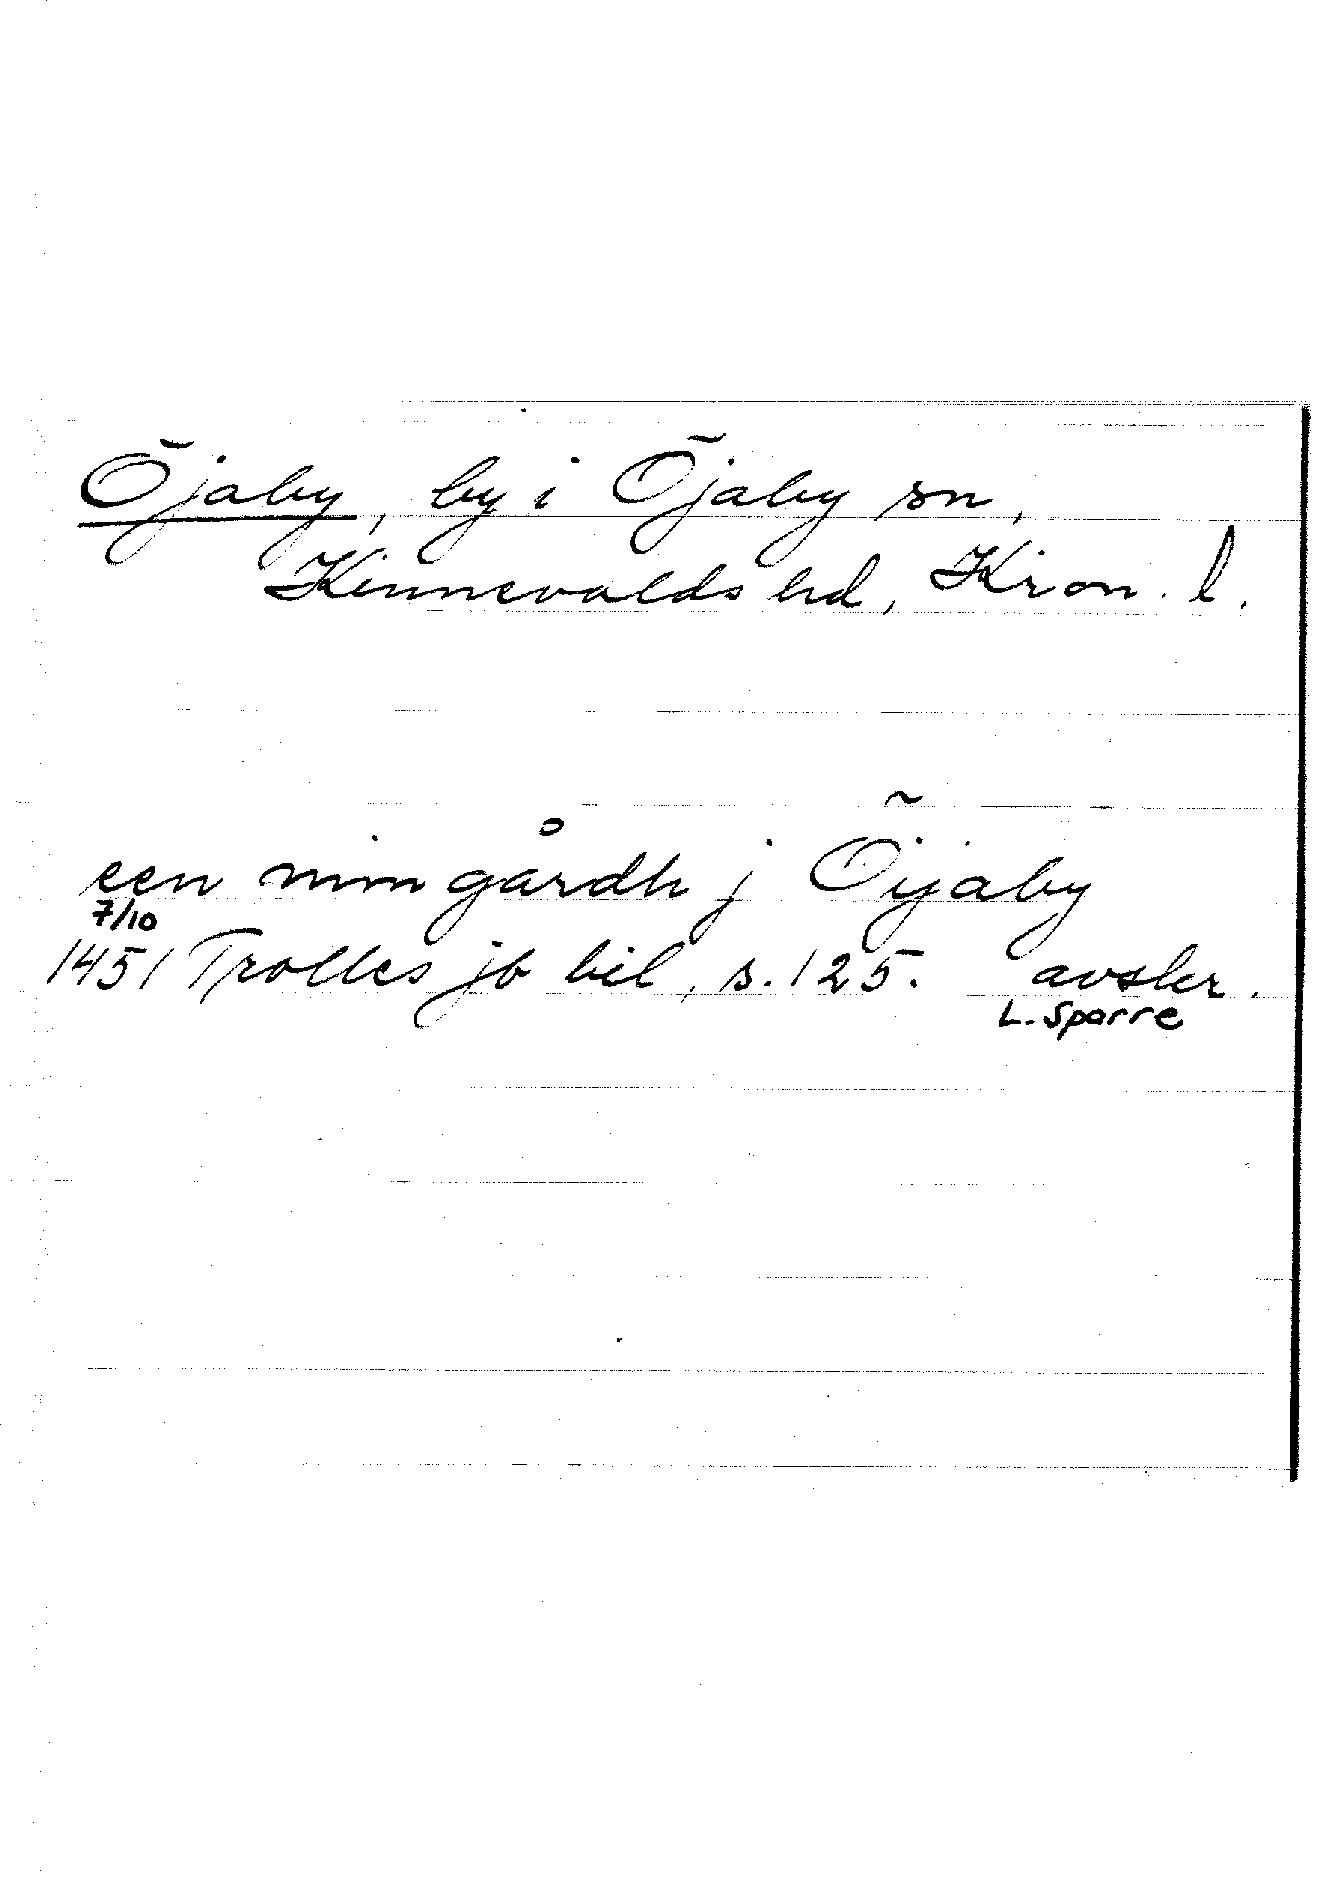 Öjaby, by i Öjaby sn,
Kinnevalds hd, Kron. l.
een min gårdh j Öijaby
7/10
1451 Trolles jb bil, s. 125. avskr.
L. Sparre